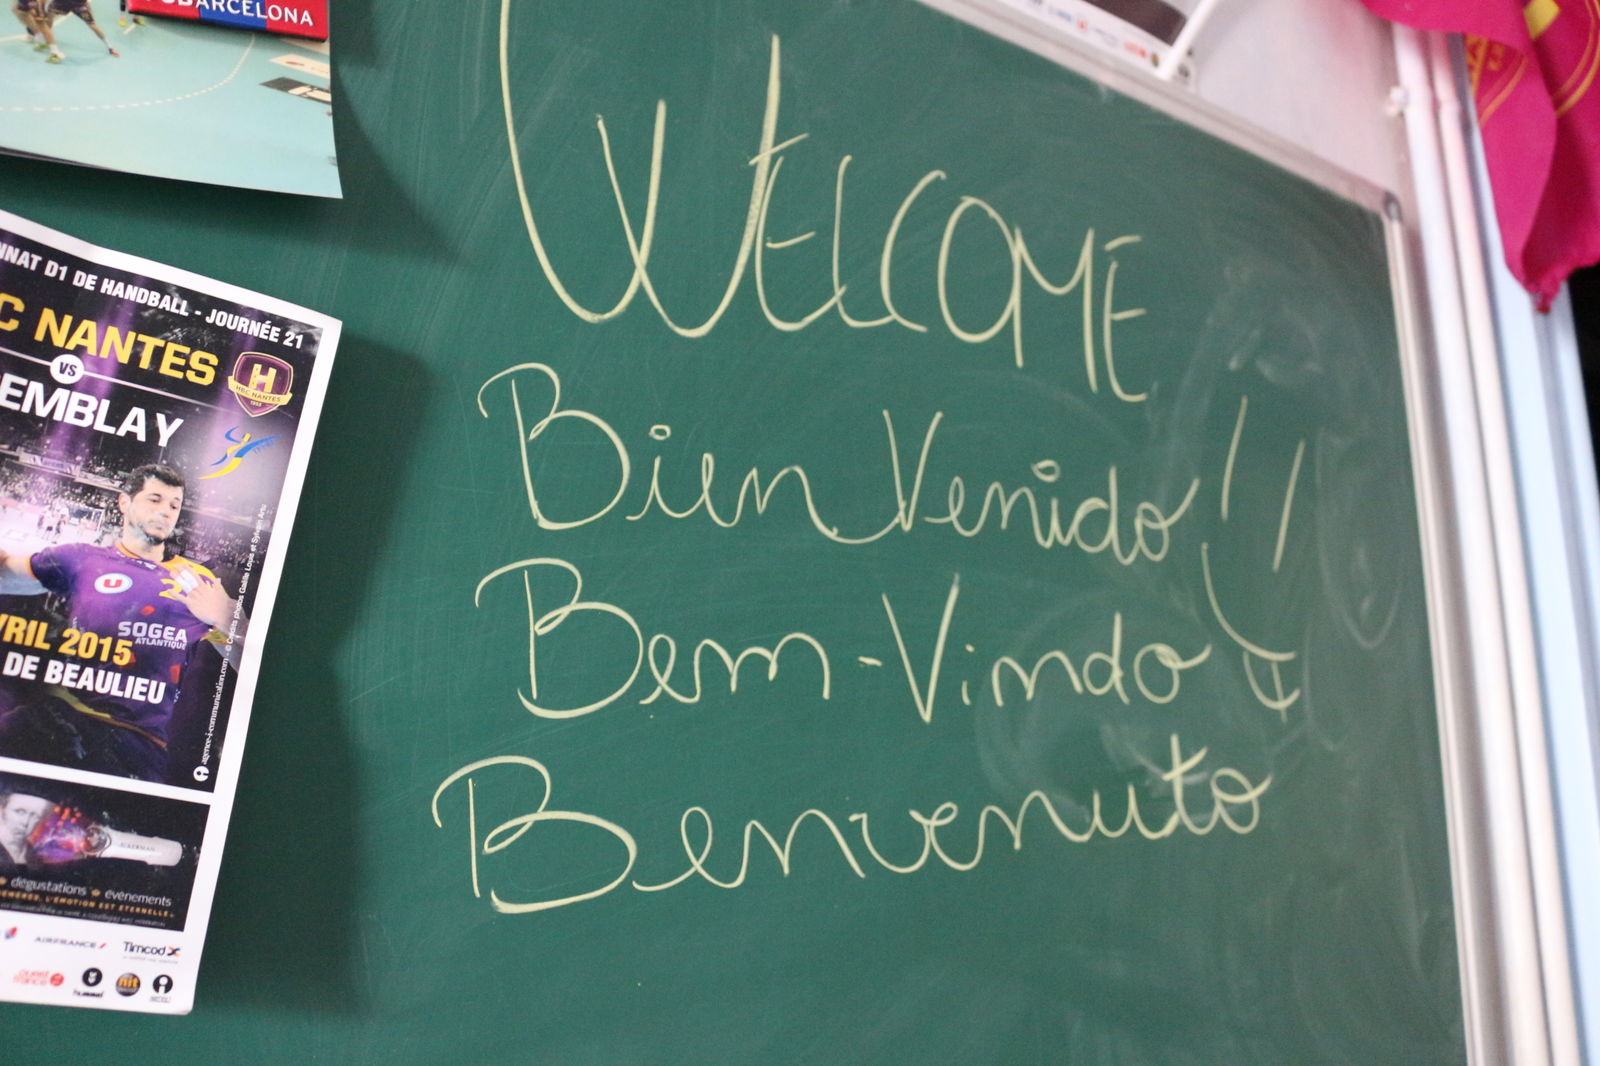 BARCELONA
NNAT D1 DE HANDBALL - JOURNÉE 21
C NANTES
VS
EMBLAY
HBC NANTES
U
SOGEA
ATLANTIQUE
VRIL 2015
DE BEAULIEU
dégustations ★ evénements
L'EMOTION EST ETERNELLE
AIRFRANCE
Timcod
ouest
france
hummel
nit
WELCOME
Bien Venido !!
Bem-Vindo
Benvenuto